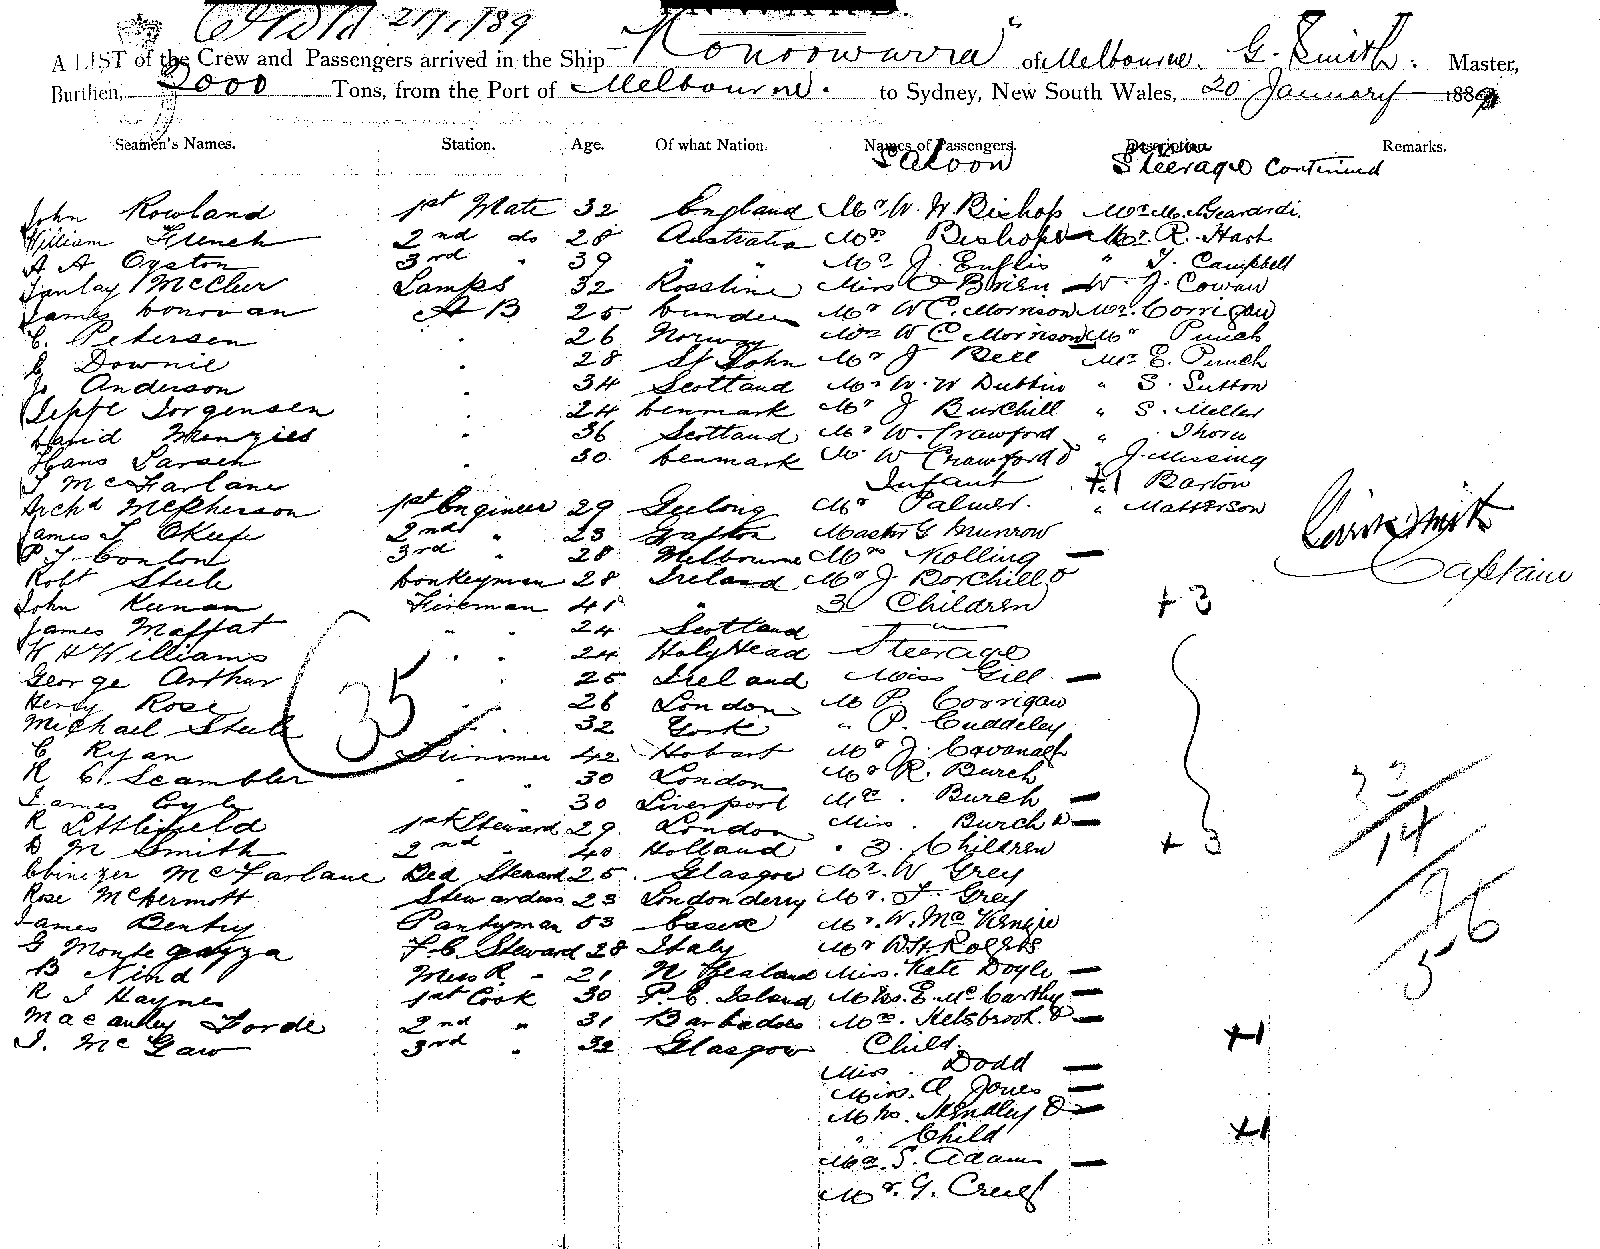 A LIST of the Crew and Passengers arrived in the Ship "Konoowarra" of Melbourne. G. Smith. Master,
Burthen, 2000 Tons, from the Port of Melbourne. to Sydney, New South Wales, 20 January 188
Seamen's Names. Station. Age. Of what Nation. Names of Passengers. Description Remarks.
Saloon Steerage Continued
John Rowland 1st Mate 32 England Mr W. W Bishop
William French 2nd do 28 Australia Mrs Bishop Mr R. Hart
A A Oyston 3rd " 39 " " Mr J. " T. Campbell
McClur Lamps 32 Miss O'Brien W. J. Cowan
James Donovan A B 25 Dundee Mr W C. Morrison Mr. Corrigan
C. Petersen " 26 Norway Mrs W C Morrison Mr Punch
Downie " 28 St John Mr J Bell Mrs E. Punch
Anderson " 34 Scotland Mr W. W Dubbin " S. Sutton
Jeppe Jorgensen " 24 Denmark Mr J Burchill " S. Meller
David Menzies " 36 Scotland Mr W. Crawford " Thorn
Hans Larsen " 30 Denmark Mrs W Crawford & " J. Missing
J McFarlane Infant +1 Barton
Archd McPherson 1st Engineer 29 Geelong Mr Palmer. " Matterson
James J OKeefe 2nd " 23 Grafton Master G Munrow
P J Conlon 3rd " 28 Melbourne Mrs Kolling
Robt Steele Donkeyman 28 Ireland Mrs J Borchill &
John Keenan Fireman 41 " 3 Children +3
James Moffat " " 24 Scotland
W H Williams " " 24 HolyHead Steerage
George Arthur " 25 Ireland Miss Gill
Henry Rose " " 26 London M P. Corrigan
Michael Steele " " 32 York " P. Cuddeley
C Ryan Trimmer 42 Hobart Mr J. Cavanagh
R C. Scambler " " 30 London Mr R. Burch
James Coyle " 30 Liverpool Mrs. Burch
R Littlefield 1st Steward 29 London Miss. Burch &
D M Smith 2nd " 40 Holland " 3. Children +3
Ebinezer McFarlane Bed Steward 25. Glasgow Mr. W Grey
Rose McDermott Stewardess 23 Londonderry Mr. F. Grey
James Bentry Pantryman 53 Essex Mr. W. McKenzie
G Montegazza F. C. Steward 28 Italy Mr W H Rogers
B Nind Mess R " 21 N Zealand Miss. Kate Doyle
R J Haynes 1st Cook 30 P. E. Island Mrs. E. McCarthy
Macauley Forde 2nd " 31 Barbados Mrs. Helsbrook. &
J. McGaw 3rd " 32 Glasgow Child. +1
Miss Dodd
Miss. A Jones
Mrs. Hendley &
" Child +1
Mrs. S. Adams
Mr. G.
35
Smith
Captain
14
36
5